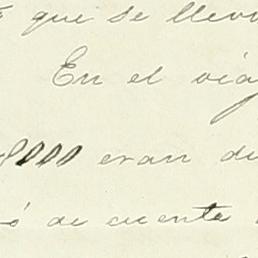 que se llevó
En el via
8000 eran de
ó de cuenta